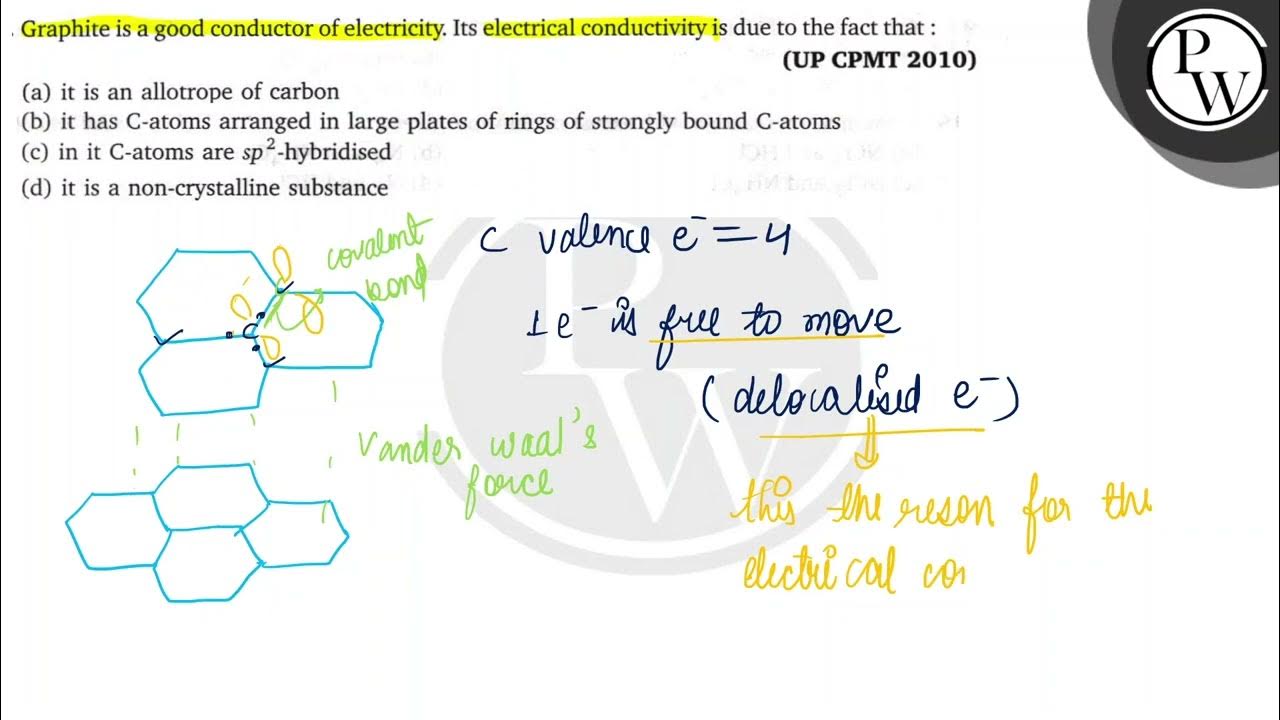 Graphite is a good conductor of electricity. Its electrical conductivity is due to the fact that :
(UP CPMT 2010)
(a) it is an allotrope of carbon
(b) it has C-atoms arranged in large plates of rings of strongly bound C-atoms
(c) in it C-atoms are sp²-hybridised
(d) it is a non-crystalline substance
P
W
covalent
bond
C
C valence e⁻ = 4
1e⁻ is free to move
(delocalised e⁻)
Vander waal's
force
this the reson for the
electrical co